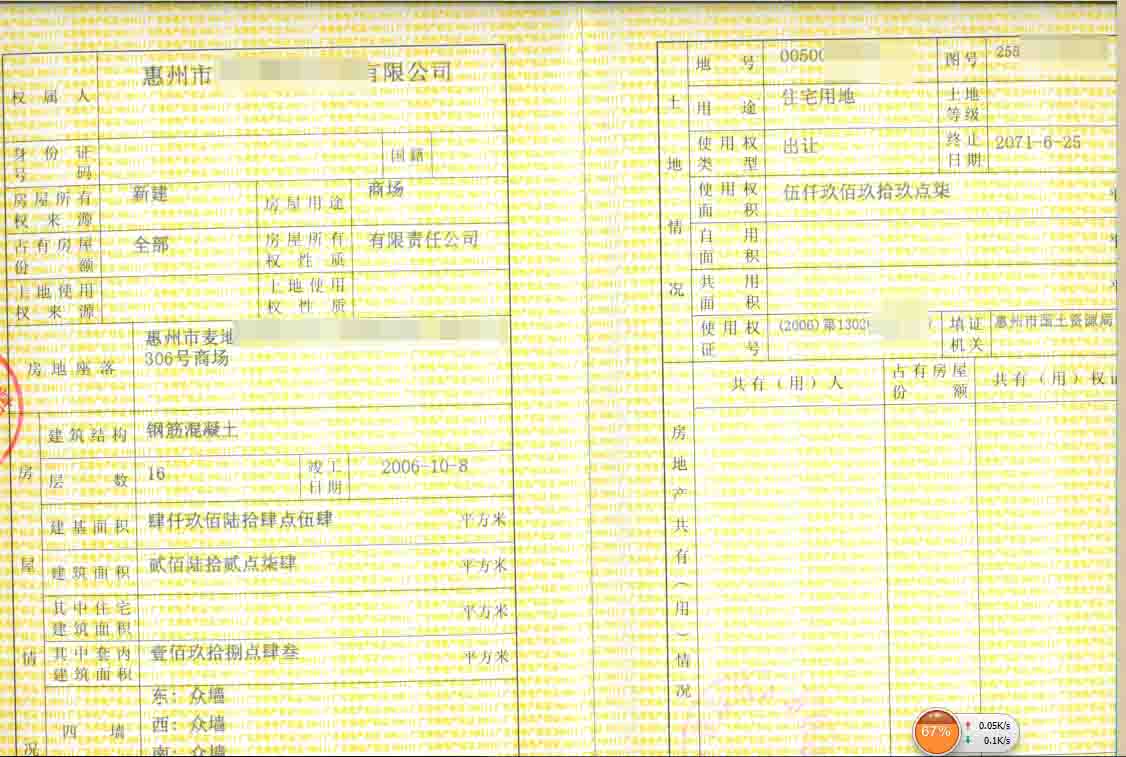 惠州市
有限公司
权属人
身份证号码
国籍
房屋所有权来源
新建
房屋用途
商场
占有房屋份额
全部
房屋所有权性质
有限责任公司
土地使用权来源
土地使用权性质
房地座落
惠州市麦地
306号商场
房屋情况
建筑结构
钢筋混凝土
层数
16
竣工日期
2006-10-8
建基面积
肆仟玖佰陆拾肆点伍肆
平方米
建筑面积
贰佰陆拾贰点柒肆
平方米
其中住宅建筑面积
平方米
其中套内建筑面积
壹佰玖拾捌点肆叁
平方米
四墙
东：众墙
西：众墙
南：众墙
土地情况
地号
00500
图号
255
用途
住宅用地
土地等级
使用权类型
出让
终止日期
2071-6-25
使用权面积
伍仟玖佰玖拾玖点柒
自用面积
共用面积
使用权证号
(2006)第1302
填证机关
惠州市国土资源局
房地产共有（用）情况
共有（用）人
占有房屋份额
共有（用）权
67%
0.05K/s
0.1K/s